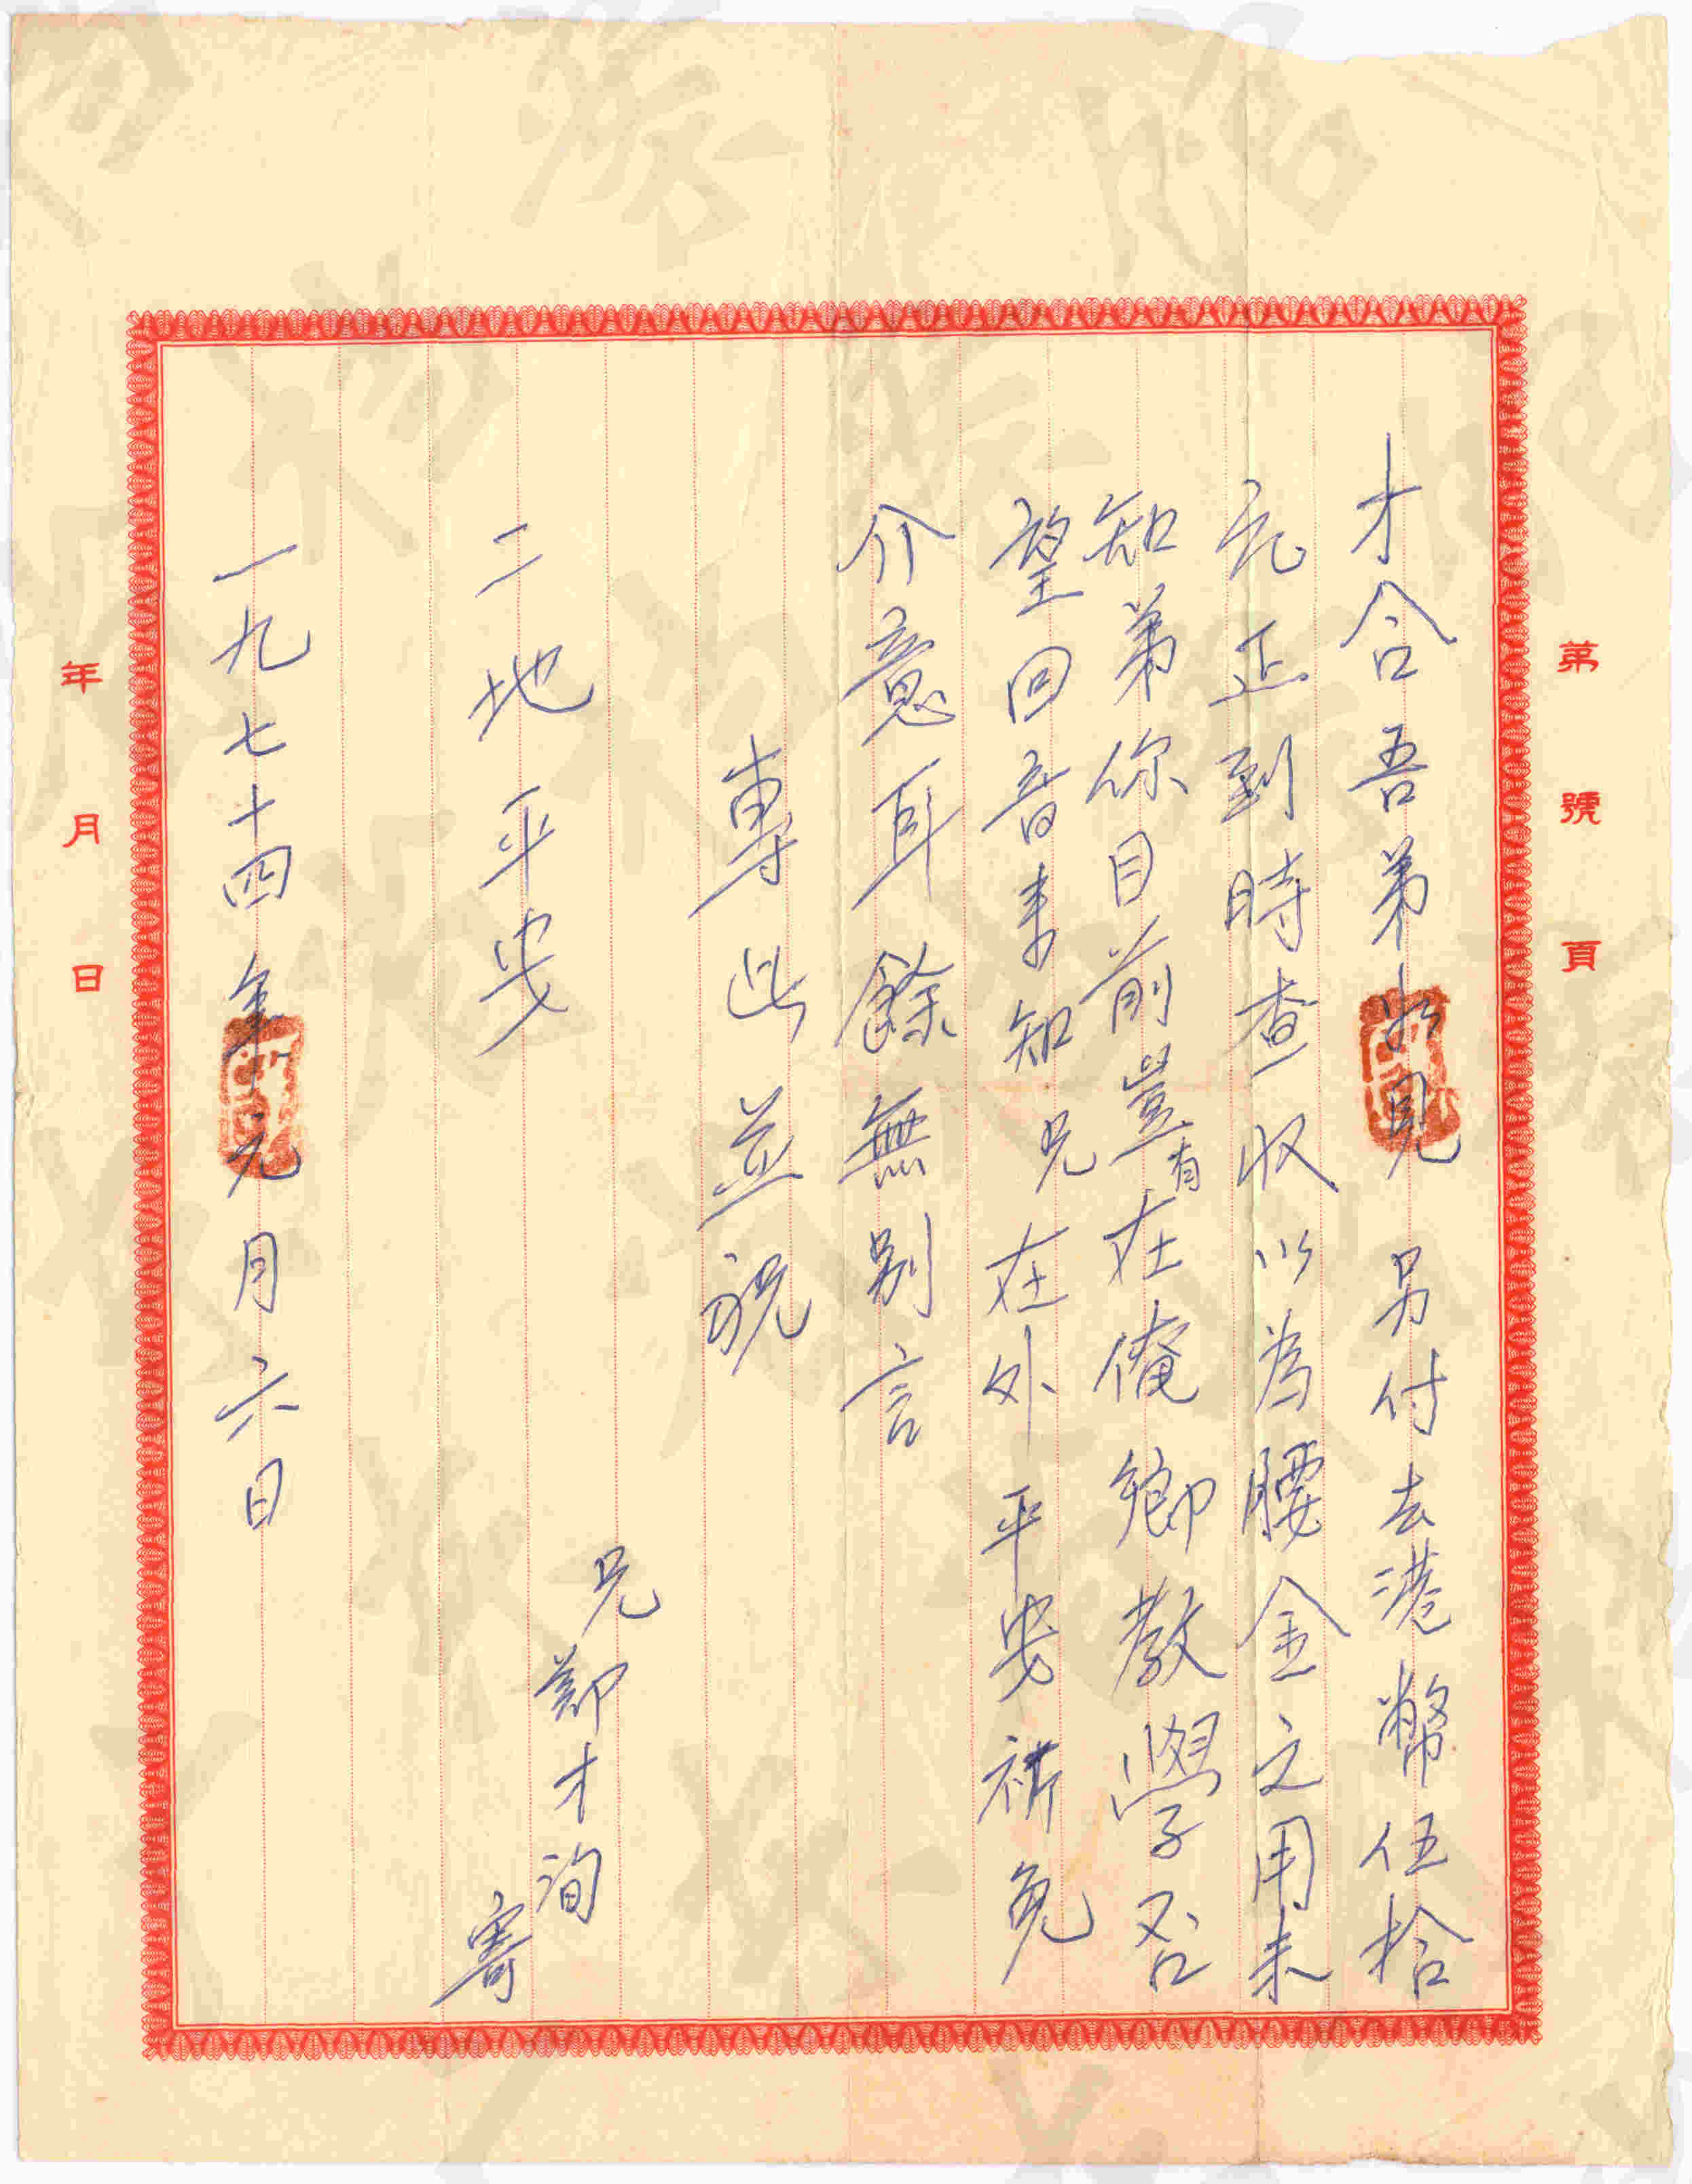 第 號 頁
才合吾弟如見 另付去港幣伍拾
元正到時查收以為腰金之用未
知弟你目前豈有在俺鄉教學否
望回音来知兄在外平安祈免
介意耳餘無別言
專此並祝
二地平安
兄鄭才洵
寄
一九七十四年元月六日
年 月 日